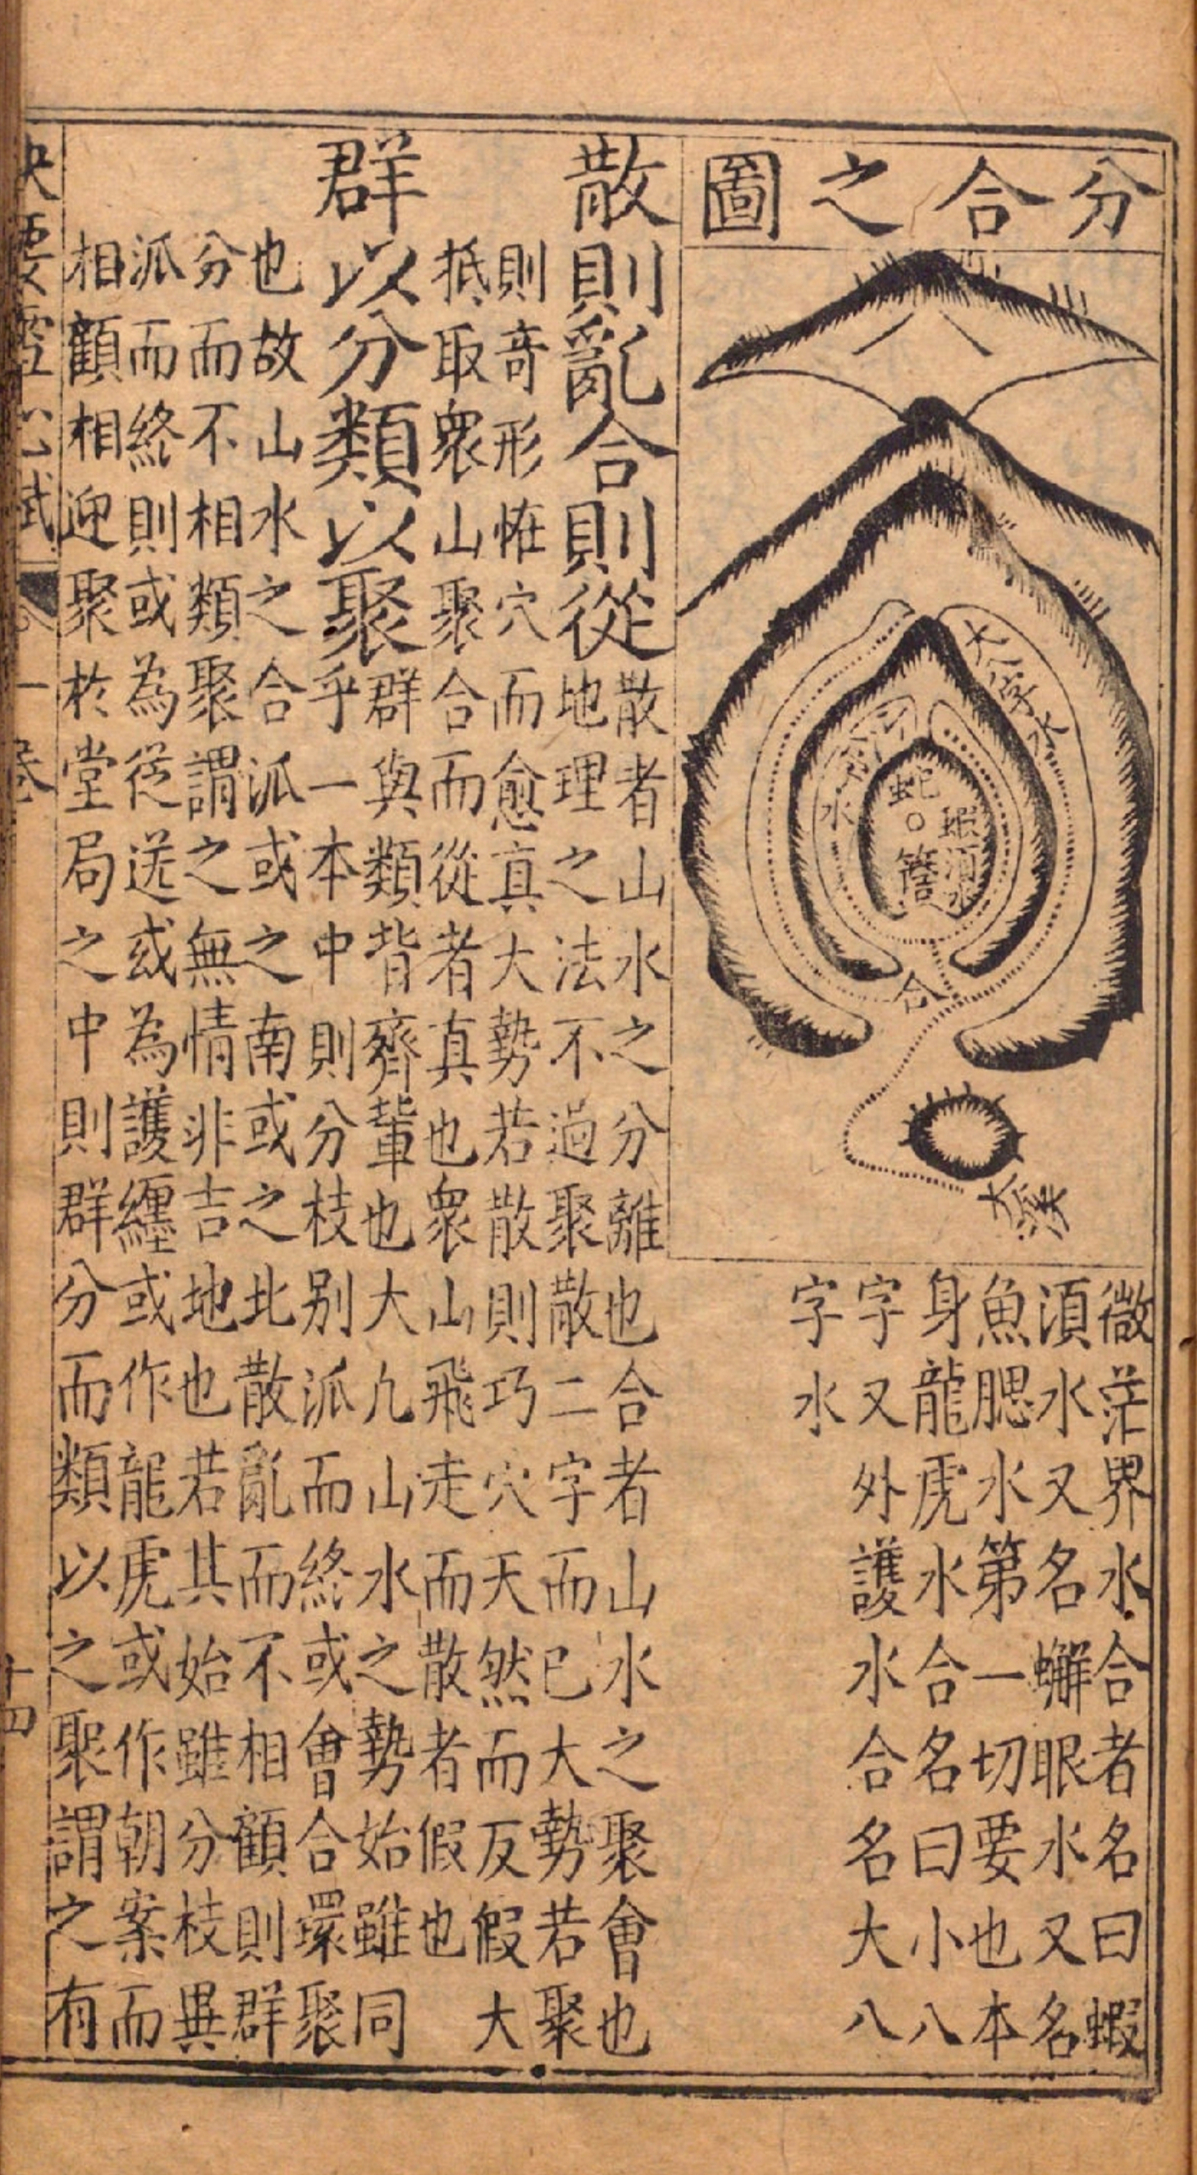 分合之圖
八
大八字水
水
蛇
簷
蝦鬚水
合
大溪
微茫界水合者名曰蝦
湏水又名蠏眼水又名
魚腮水第一切要也本
身龍虎水合名曰小八
字又外護水合名大八
字水
散則亂合則從
散者山水之分離也合者山水之聚會也
地理之法不過聚散二字而已大勢若聚
則竒形恠穴而愈真大勢若散則巧穴天然而反假大
抵取衆山聚合而從者真也衆山飛走而散者假也
群以分類以聚乎
群與類背齊軰也大凢山水之勢始雖同
一本中則分枝别派而終或會合環聚
也故山水之合派或之南或之北散亂而不相顧則群
分而不相類聚謂之無情非吉地也若其始雖分枝異
派而終則或為從送或為護纒或作龍虎或作朝案而
相顧相迎聚於堂局之中則群分而類以之聚謂之有
訣要雪心賦
一卷
十四